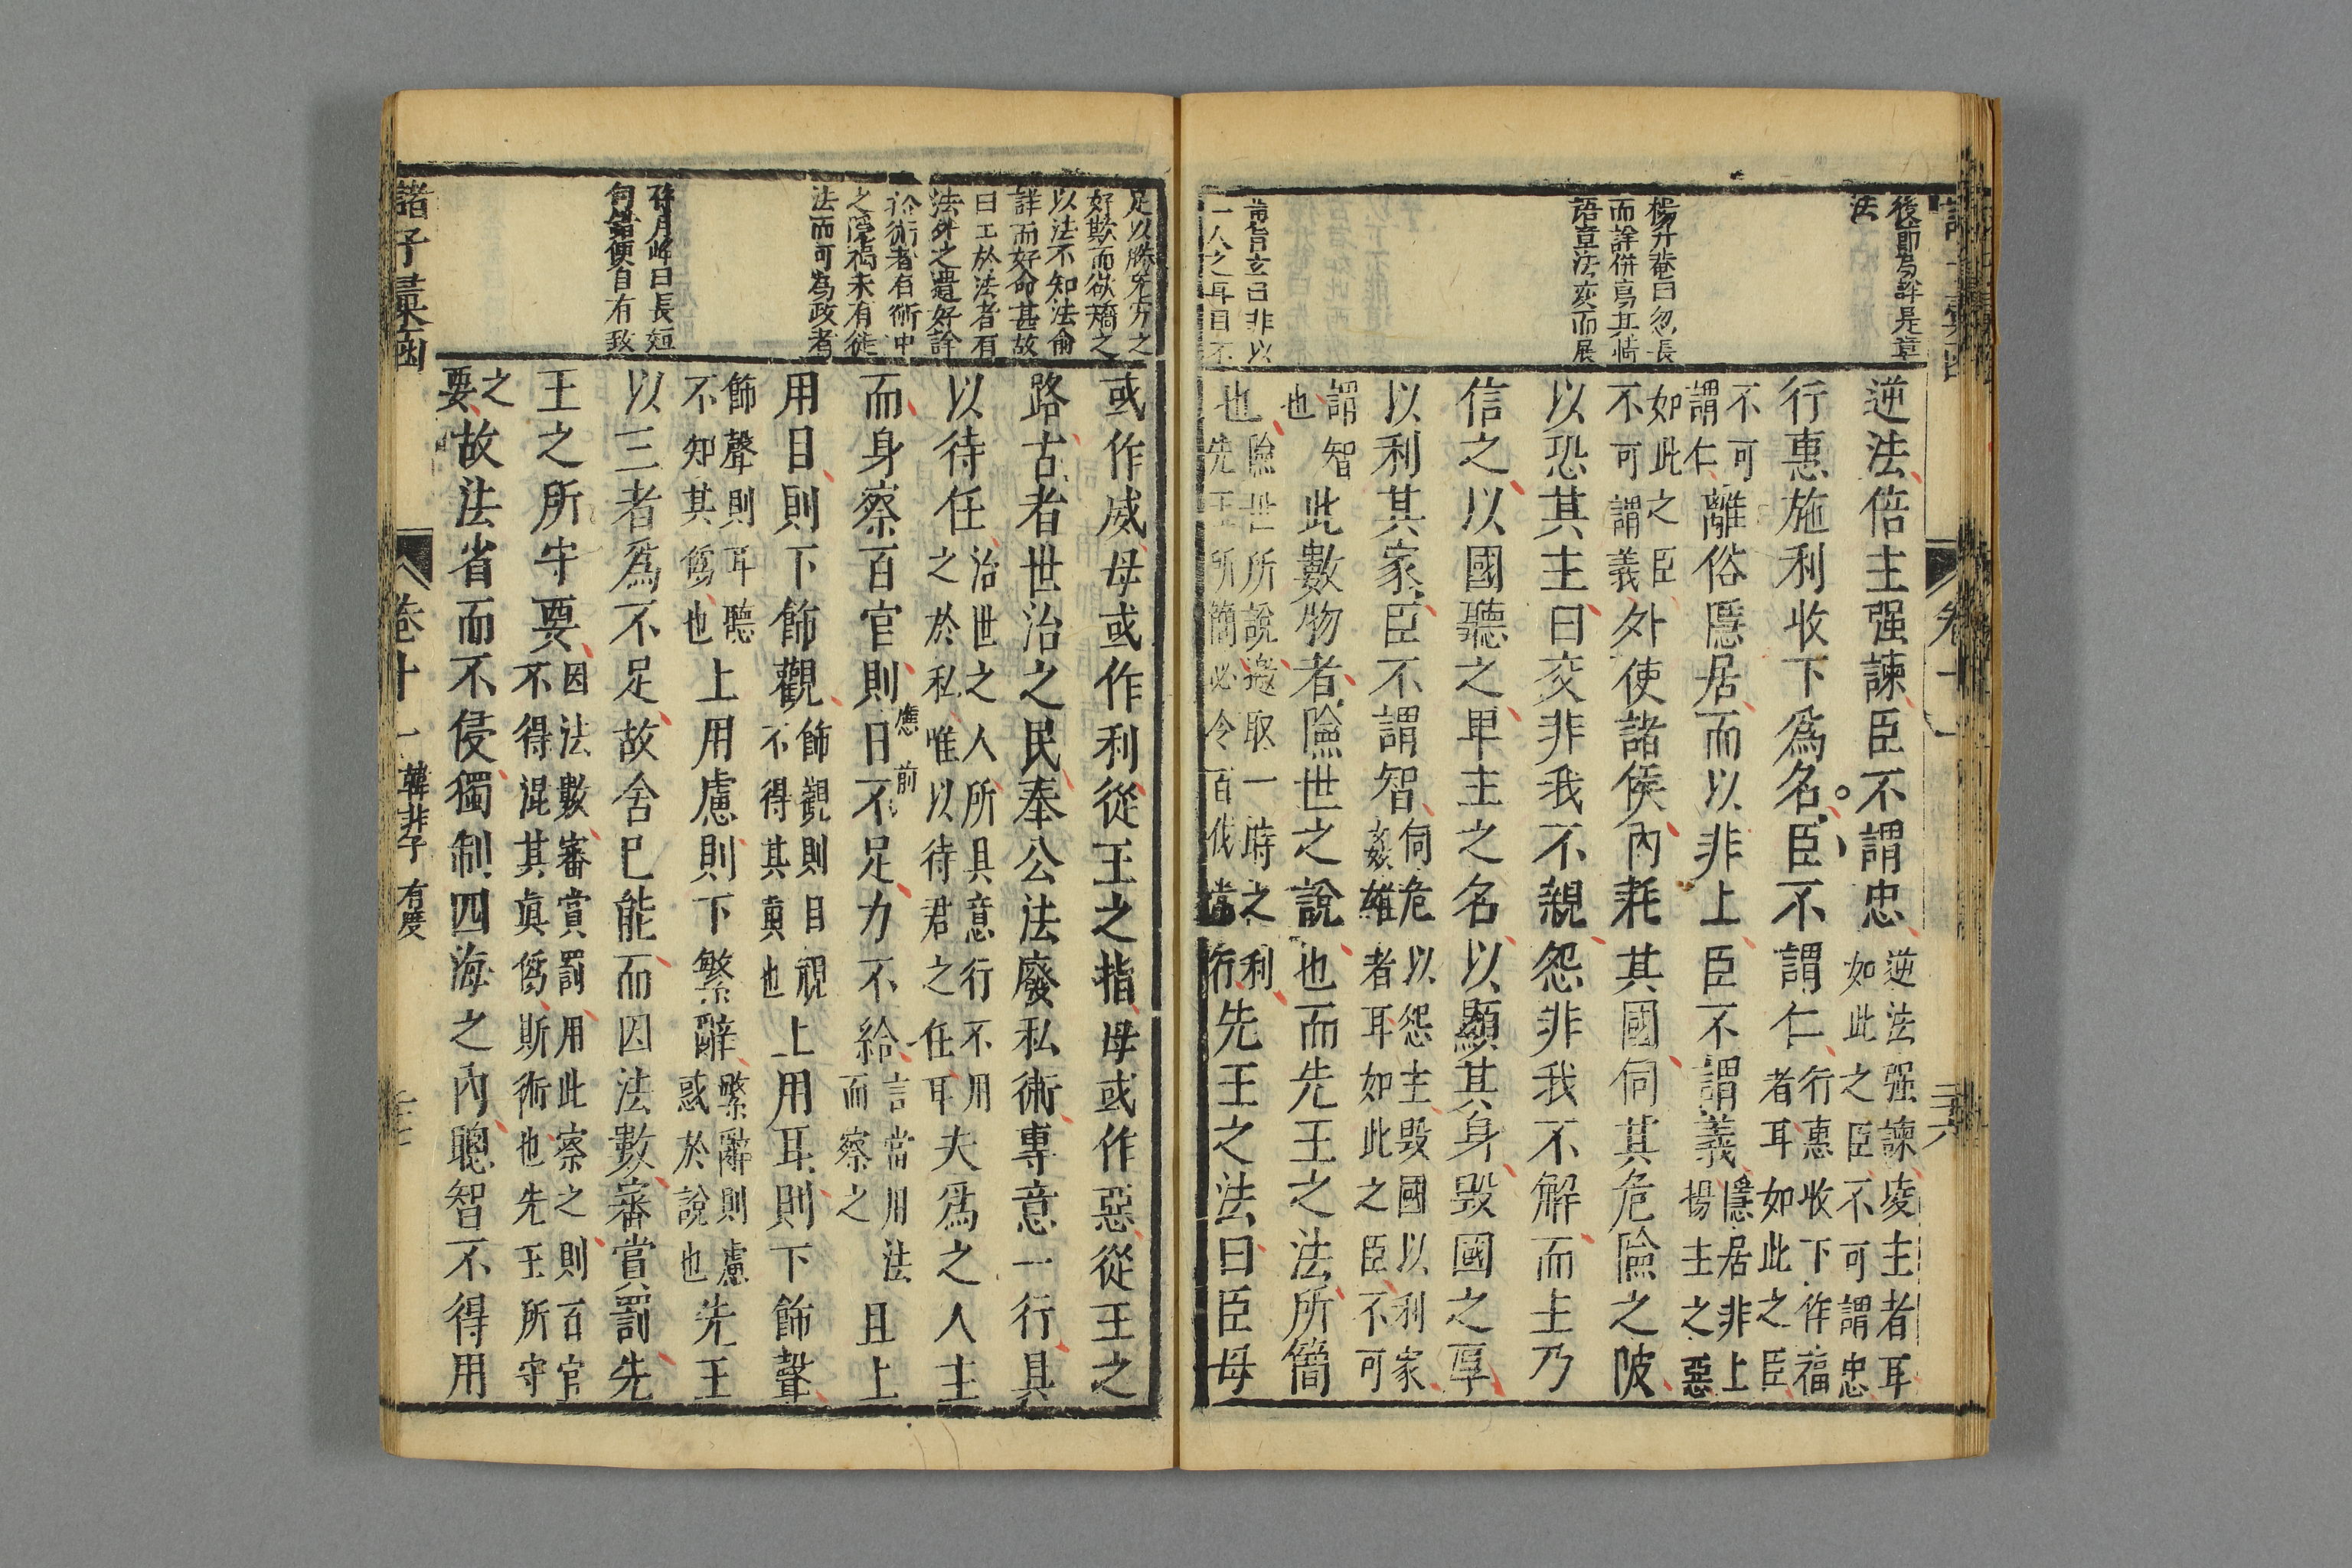 後節局詳是章
法
楊升菴曰忽長
而詳併寫其情
語章法亥而展
一人之耳目不
逆法倍主强諫臣不謂忠逆法强諫夌主者耳
如此之臣不可謂忠
行惠施利收下爲名臣不謂仁行惠收下作福
者耳如此之臣
不可
謂仁離俗隱居而以非上臣不謂義隱居非上
揚主之惡
如此之臣
不可謂義外使諸侯內耗其國伺其危險之陂
以恐其主曰交非我不親怨非我不解而主乃
信之以國聽之卑主之名以顯其身毀國之厚
以利其家臣不謂智伺危以怨主毀國以利家
姦雄者耳如此之臣不可
謂智
也此數物者險世之說也而先王之法所簡
也險世所說邀取一時之利
先王所簡必令百伐當行先王之法曰臣毋
卷十一
足以勝兇穷之
好欺而欲矯之
以法不知法俞
詳而好命甚故
曰工於法者有
法外之遺好詳
於術者有術中
之隱禍未有徙
法而可為政者
孫月峰曰長短
句錯便自有致
或作威毋或作利從王之指毋或作惡從王之
路古者世治之民奉公法廢私術專意一行具
以待任治世之人所具意行不用
之於私唯以待君之任耳夫爲之人主
而身察百官則應前日不足力不給言當用法
而察之且上
用目則下飾觀飾觀則目視
不得其眞也上用耳則下飾聲
飾聲則耳聽
不知其僞也上用慮則下繁辭繁辭則慮
惑於說也先王
以三者爲不足故舍已能而因法數審賞罰先
王之所守要因法數審賞罰用此察之則百官
不得混其眞僞斯術也先王所守
之
要故法省而不侵獨制四海之內聰智不得用
諸子彙函
卷十一
韓非子
有度